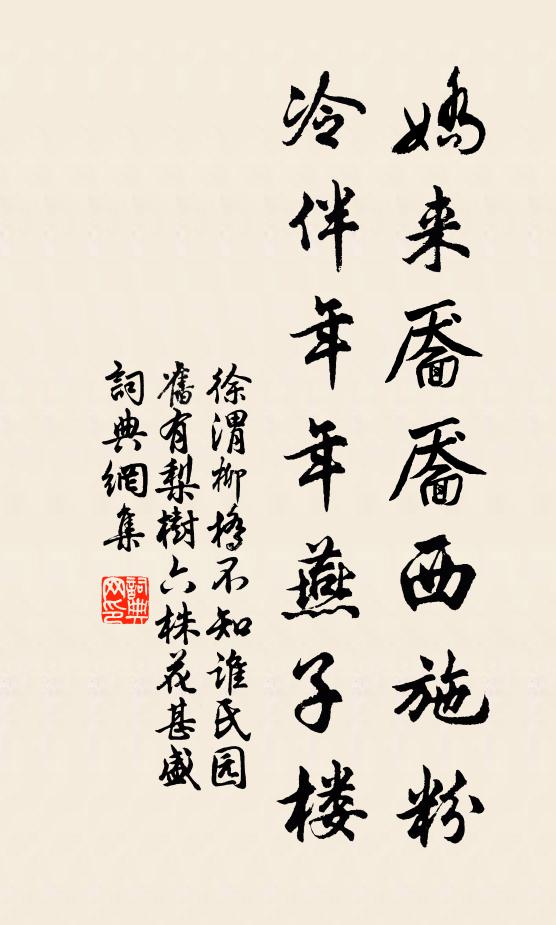 娇来靥靥西施粉
冷伴年年燕子楼
徐渭柳桥不知谁氏园
舊有梨樹六株花甚盛
詞典網集
詞典網印